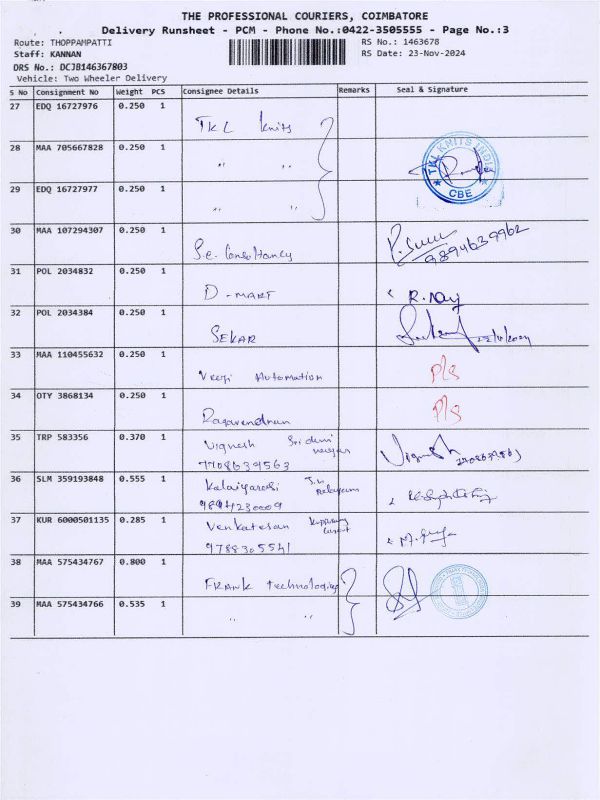 THE PROFESSIONAL COURIERS, COIMBATORE
Delivery Runsheet - PCM - Phone No.:0422-3505555 - Page No.:3
Route: THOPPAMPATTI
Staff: KANNAN
DRS No.: DCJB146367803
Vehicle: Two Wheeler Delivery
RS No.: 1463678
RS Date: 23-Nov-2024
S No Consignment No Weight PCS Consignee Details Remarks Seal & Signature
27 EDQ 16727976 0.250 1 TKL Knits
28 MAA 705667828 0.250 1 " " TKL KNITS INDIA CBE
29 EDQ 16727977 0.250 1 " "
30 MAA 107294307 0.250 1 S.e. Consultancy 9894639962
31 POL 2034832 0.250 1 D-MART
32 POL 2034384 0.250 1 SEKAR
33 MAA 110455632 0.250 1 Automation P/s
34 OTY 3868134 0.250 1 P/s
35 TRP 583356 0.370 1 Vignesh
7708639563 Vignesh
36 SLM 359193848 0.555 1 Kalaiyarasi
9894230009
37 KUR 6000501135 0.285 1 Venkatesan
9788305541
38 MAA 575434767 0.800 1 FRANK Technologies
39 MAA 575434766 0.535 1 " "